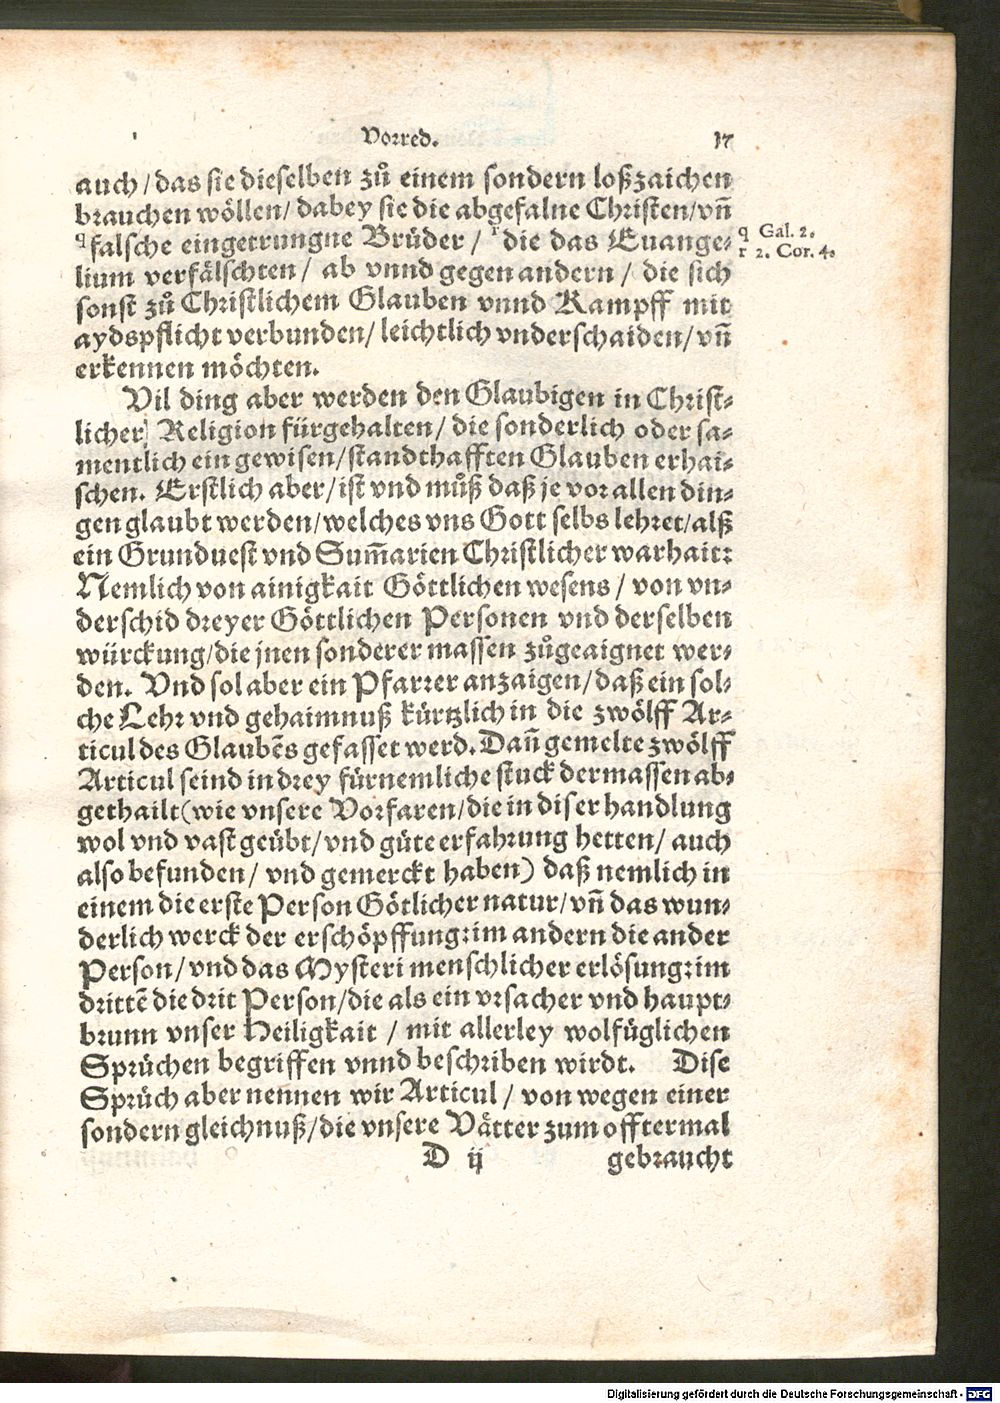 Vorred. 17
auch/das sie dieselben zů einem sondern loßzaichen
brauchen wöllen/dabey sie die abgefalne Christen/vn̄
q falsche eingetrungne Brüder/ r die das Euange⸗
q Gal. 2.
lium verfälschten/ ab vnnd gegen andern/ die sich
r 2. Cor. 4.
sonst zů Christlichem Glauben vnnd Kampff mit
aydspflicht verbunden/leichtlich vnderschaiden/vn̄
erkennen möchten.
Vil ding aber werden den Glaubigen in Christ⸗
licher Religion fürgehalten/ die sonderlich oder sa⸗
mentlich ein gewisen/standthafften Glauben erhai⸗
schen. Erstlich aber/ist vnd můß daß je vor allen din⸗
gen glaubt werden/welches vns Gott selbs lehret/alß
ein Grunduest vnd Sum̄arien Christlicher warhait:
Nemlich von ainigkait Göttlichen wesens/ von vn⸗
derschid dreyer Göttlichen Personen vnd derselben
würckung/die jnen sonderer massen zůgeaignet wer⸗
den. Vnd sol aber ein Pfarrer anzaigen/daß ein sol⸗
che Lehr vnd gehaimnuß kürtzlich in die zwölff Ar⸗
ticul des Glaubēs gefasset werd. Dan̄ gemelte zwölff
Articul seind in drey fürnemliche stuck dermassen ab⸗
gethailt(wie vnsere Vorfaren/die in diser handlung
wol vnd vast geübt/vnd gůte erfahrung hetten/ auch
also befunden/ vnd gemerckt haben) daß nemlich in
einem die erste Person Götlicher natur/vn̄ das wun⸗
derlich werck der erschöpffung:im andern die ander
Person/vnd das Mysteri menschlicher erlösung:im
drittē die drit Person/die als ein vrsacher vnd haupt⸗
brunn vnser Heiligkait/ mit allerley wolfüglichen
Sprüchen begriffen vnnd beschriben wirdt. Dise
Sprüch aber nennen wir Articul/ von wegen einer
sondern gleichnuß/die vnsere Vätter zum offtermal
D ij gebraucht
Digitalisierung gefördert durch die Deutsche Forschungsgemeinschaft - DFG